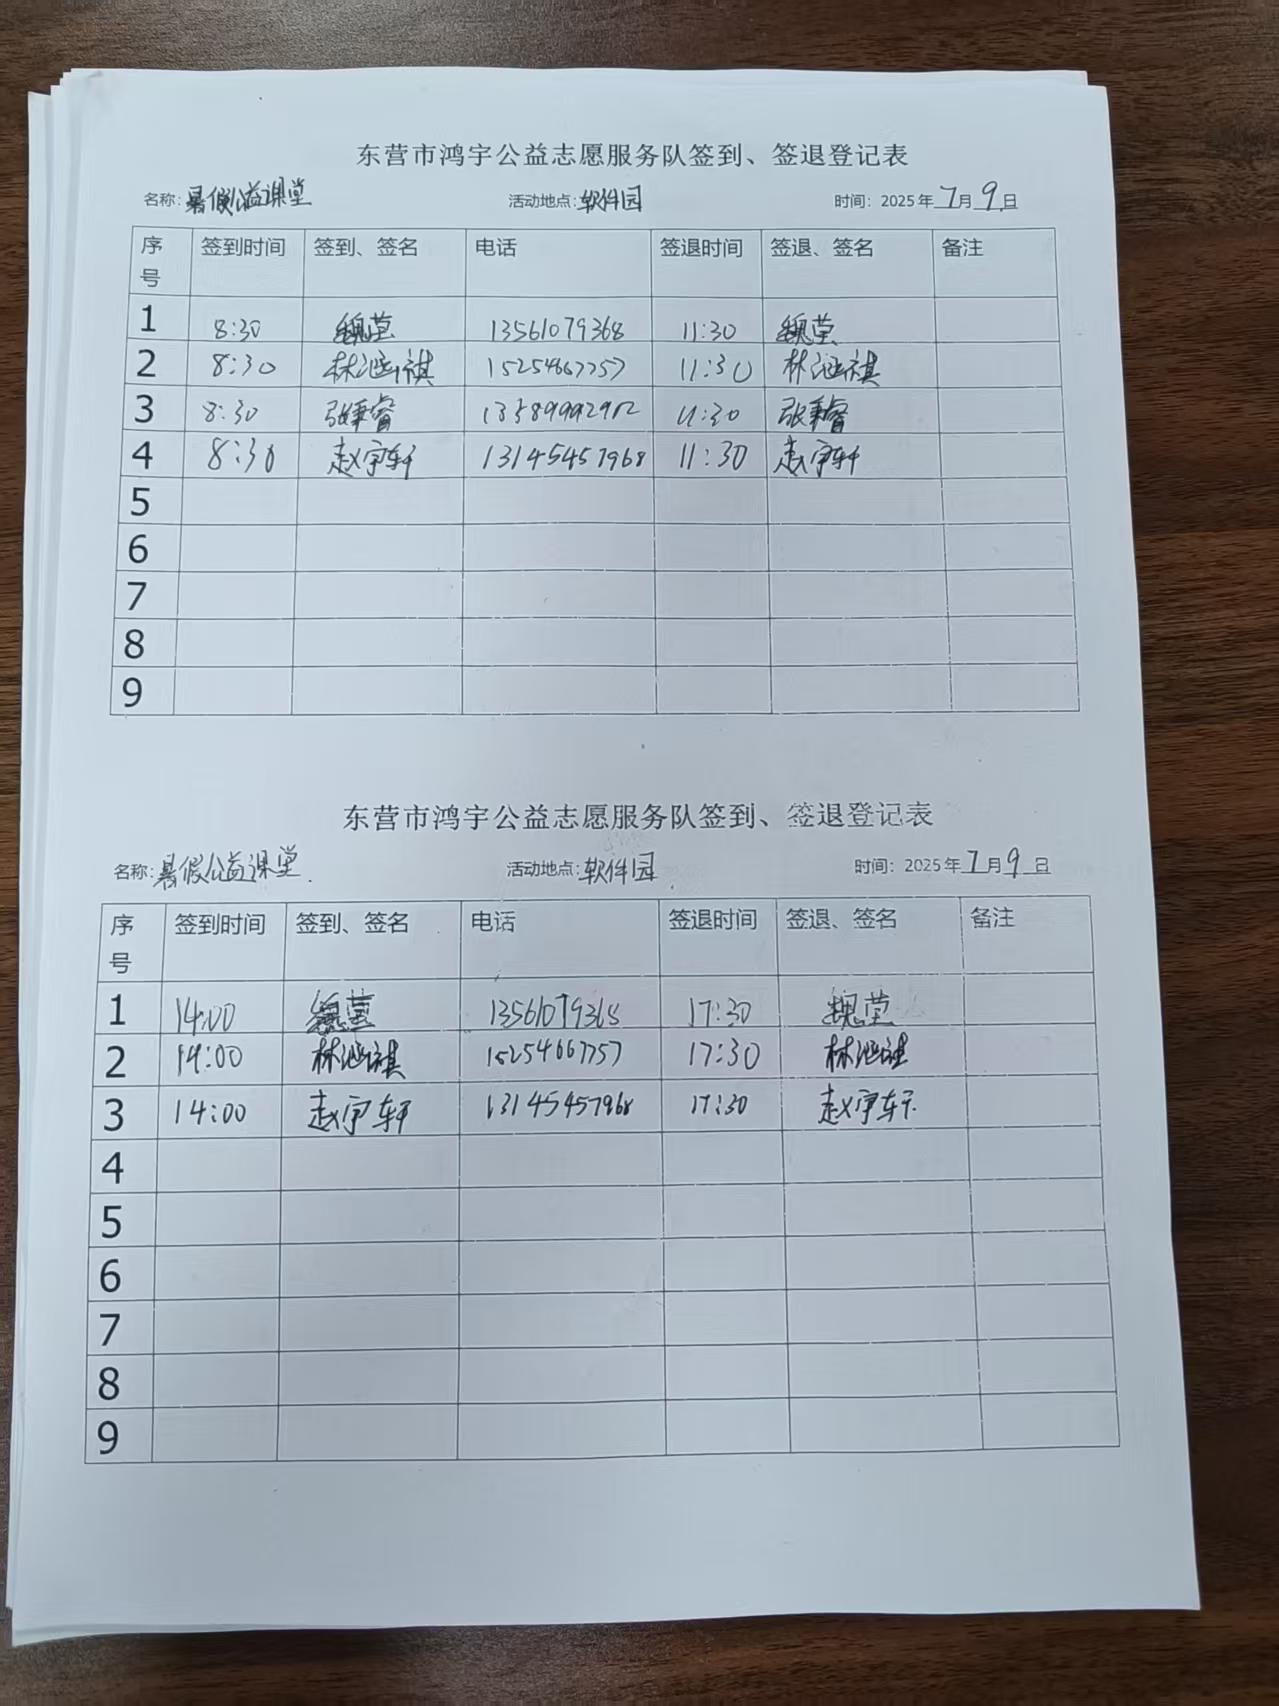 东营市鸿宇公益志愿服务队签到、签退登记表
名称：暑假公益课堂 活动地点：软件园 时间：2025年7月9日
序号 签到时间 签到、签名 电话 签退时间 签退、签名 备注
1 8:30 魏莹 13561079368 11:30 魏莹
2 8:30 林涵祺 15254667757 11:30 林涵祺
3 8:30 张秉睿 11:30 张秉睿
4 8:30 赵宇轩 13145457968 11:30 赵宇轩
5
6
7
8
9
东营市鸿宇公益志愿服务队签到、签退登记表
名称：暑假公益课堂 活动地点：软件园 时间：2025年7月9日
序号 签到时间 签到、签名 电话 签退时间 签退、签名 备注
1 14:00 魏莹 13561079368 17:30 魏莹
2 14:00 林涵祺 15254667757 17:30 林涵祺
3 14:00 赵宇轩 13145457968 17:30 赵宇轩
4
5
6
7
8
9